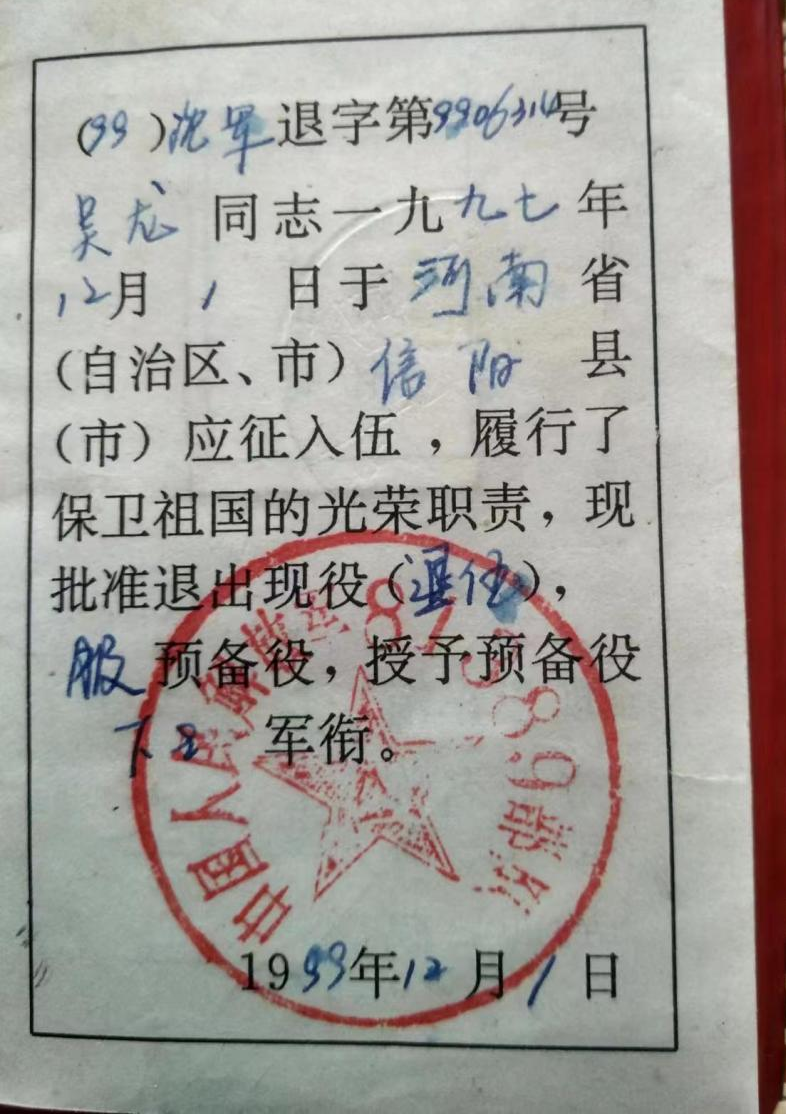 (99)沈军退字第9906314号
吴龙 同志一九九七年
12月 1 日于 河南 省
(自治区、市) 信阳 县
(市) 应征入伍，履行了
保卫祖国的光荣职责，现
批准退出现役(退伍)，
服预备役，授予预备役
下士 军衔。
中国人民解放军81389部队
1999年12月1日